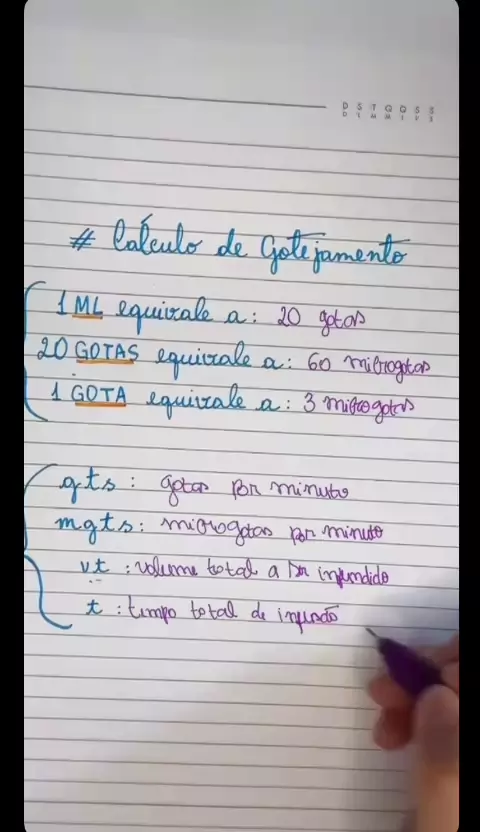 D S T Q Q S S
D L M M J V S
# Cálculo de Gotejamento
1 ML equivale a: 20 gotas
20 GOTAS equivale a: 60 microgotas
1 GOTA equivale a: 3 microgotas
gts: gotas por minuto
mgts: microgotas por minuto
vt: volume total a ser infundido
t: tempo total de infusão